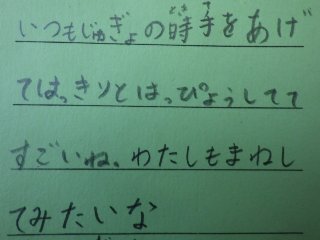 いつもじゅぎょの時手をあげ
てはっきりとはっぴょうしてて
すごいね。わたしもまねし
てみたいな